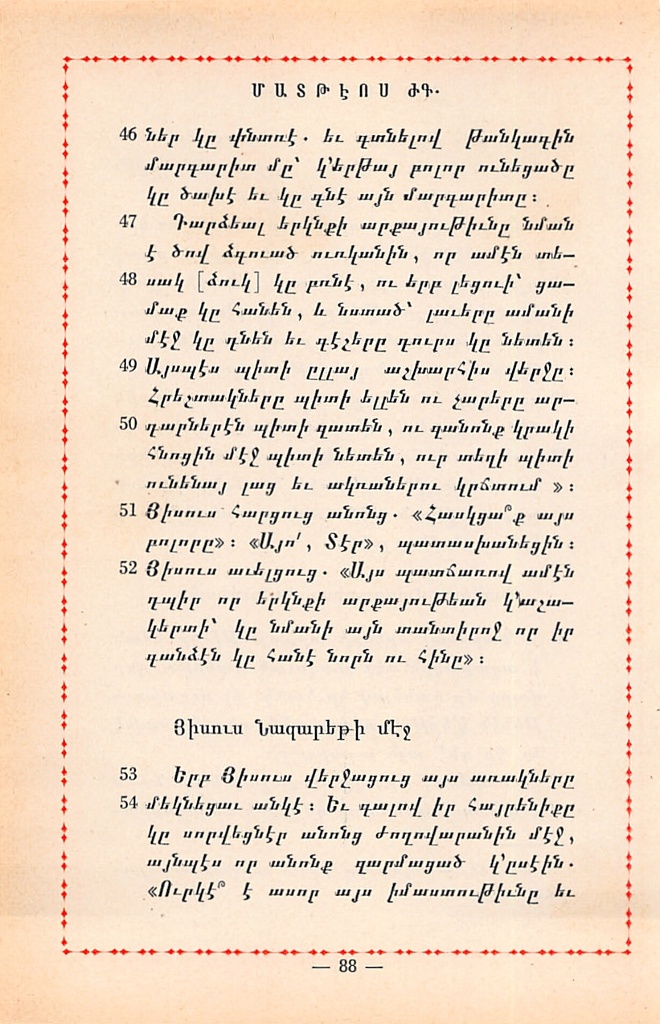 ՄԱՏԹԷՈՍ ԺԳ.
46 ներ կը փնտռէ. եւ գտնելով թանկագին
մարգարիտ մը՝ կ՚երթայ բոլոր ունեցածը
կը ծախէ եւ կը գնէ այն մարգարիտը:
47 Դարձեալ երկնքի արքայութիւնը նման
է ծով ձգուած ուռկանին, որ ամէն տե—
48 սակ [ձուկ] կը բռնէ, ու երբ լեցուի՝ ցա—
մաք կը հանեն, և նստած՝ լաւերը ամանի
մէջ կը դնեն եւ գէշերը դուրս կը նետեն:
49 Այսպէս պիտի ըլլայ աշխարհիս վերջը:
Հրեշտակները պիտի ելլեն ու չարերը ար—
50 դարներէն պիտի զատեն, ու զանոնք կրակի
հնոցին մէջ պիտի նետեն, ուր տեղի պիտի
ունենայ լաց եւ ակռաներու կրճտում »:
51 Յիսուս հարցուց անոնց. «Հասկցա՞ք այս
բոլորը»: «Այո՛, Տէր», պատասխանեցին:
52 Յիսուս աւելցուց. «Այս պատճառով ամէն
դպիր որ երկնքի արքայութեան կ՚աշա—
կերտի՝ կը նմանի այն տանտիրոջ որ իր
գանձէն կը հանէ նորն ու հինը»:
Յիսուս Նազարեթի մէջ
53 Երբ Յիսուս վերջացուց այս առակները
54 մեկնեցաւ անկէ: Եւ գալով իր Հայրենիքը
կը սորվեցնէր անոնց ժողովարանին մէջ,
այնպէս որ անոնք զարմացած կ՚ըսէին.
«Ուրկէ՞ է ասոր այս իմաստութիւնը եւ
— 88 —